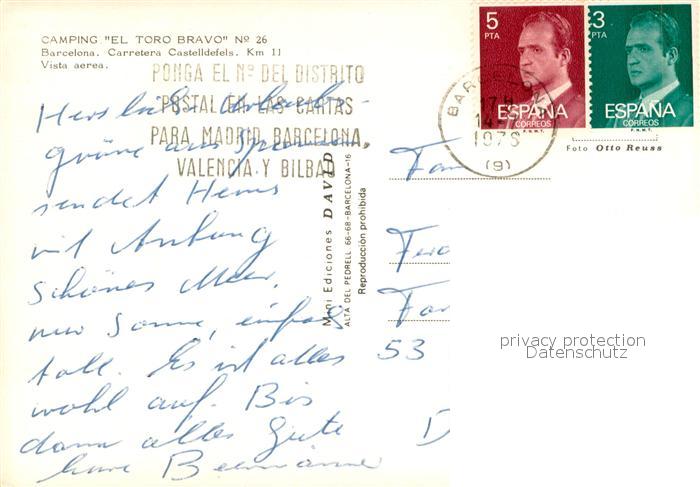 CAMPING "EL TORO BRAVO" Nº 26
Barcelona. Carretera Castelldefels. Km 11
Vista aerea.
PONGA EL Nº DEL DISTRITO
POSTAL EN LAS CARTAS
PARA MADRID, BARCELONA,
VALENCIA Y BILBAO
5 PTA
ESPAÑA
CORREOS
F.N.M.T.
3 PTA
ESPAÑA
CORREOS
F.N.M.T.
1978
(9)
Foto Otto Reuss
Mini Ediciones DAVID
ALTA DEL PEDRELL, 66-68-BARCELONA-16
Reproducción prohibida
Herzliche Urlaubs-
grüße aus Spanien
sendet
mit Anhang
Schönes Meer,
nur Sonne, einfach
toll. Es ist alles
wohl auf. Bis
dann alles Gute
53
D
privacy protection
Datenschutz